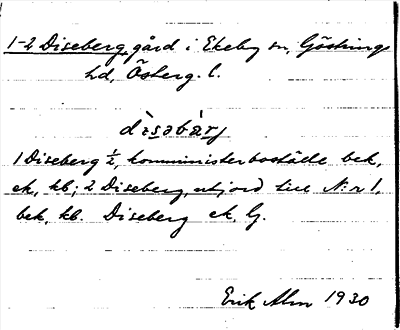 1-2 Diseberg, gård i Ekeby sn, Göstrings
hd, Österg. l.
dìsəbàrj
1 Diseberg ½, komministerboställe bek,
ek, kb; 2 Diseberg, utjord till N:r 1,
bek, kb. Diseberg ek, G.
Erik Alm 1930